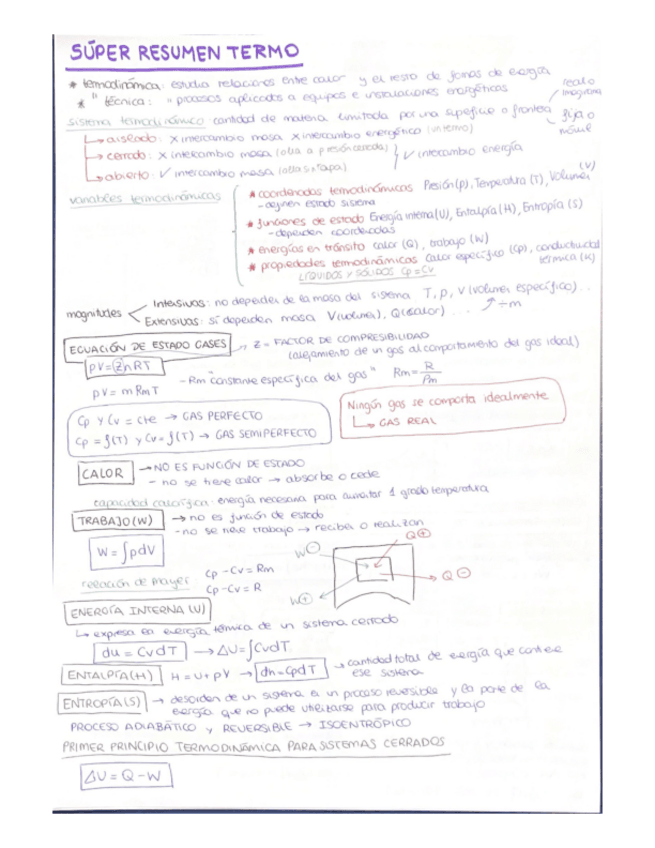 SÚPER RESUMEN TERMO
* termodinámica: estudia relaciones entre calor y el resto de formas de energía
* " técnica: " procesos aplicados a equipos e instalaciones energéticas
real o imaginaria
sistema termodinámico cantidad de materia limitada por una superficie o frontera
fija o móvil
↳ aislado: x intercambio masa x intercambio energético (un termo)
↳ cerrado: x intercambio masa (olla a presión cerrada)
↳ abierto: ✓ intercambio masa (olla sin tapa)
✓ intercambio energía
variables termodinámicas
* coordenadas termodinámicas Presión (p), Temperatura (T), Volumen (V)
- definen estado sistema
* funciones de estado Energía interna (U), Entalpía (H), Entropía (S)
- dependen coordenadas
* energías en tránsito calor (Q), trabajo (W)
* propiedades termodinámicas calor específico (Cp), conductividad térmica (K)
LÍQUIDOS Y SÓLIDOS Cp = Cv
magnitudes
Intensivas: no dependen de la masa del sistema T, p, v (volumen específico)...
Extensivas: sí dependen masa V (volumen), Q (calor) ... ÷m
ECUACIÓN DE ESTADO GASES
Z = FACTOR DE COMPRESIBILIDAD
(alejamiento de un gas al comportamiento del gas ideal)
pV = Z n R T
- Rm "constante específica del gas" Rm = R / Pm
pV = m Rm T
Cp y Cv = cte → GAS PERFECTO
Cp = f(T) y Cv = f(T) → GAS SEMIPERFECTO
Ningún gas se comporta idealmente
↳ GAS REAL
CALOR → NO ES FUNCIÓN DE ESTADO
- no se tiene calor → absorbe o cede
capacidad calorífica: energía necesaria para aumentar 1 grado temperatura
TRABAJO (W) → no es función de estado
- no se tiene trabajo → reciben o realizan
W = ∫pdV
W ⊖
Q ⊕
relación de Mayer
Cp - Cv = Rm
Cp - Cv = R
W ⊕
Q ⊖
ENERGÍA INTERNA (U)
↳ expresa la energía térmica de un sistema cerrado
du = CvdT → ΔU = ∫CvdT
ENTALPÍA (H) H = U + pV → dh = CpdT → cantidad total de energía que contiene ese sistema
ENTROPÍA (S) → desorden de un sistema en un proceso reversible y la parte de la
energía que no puede utilizarse para producir trabajo
PROCESO ADIABÁTICO y REVERSIBLE → ISOENTRÓPICO
PRIMER PRINCIPIO TERMODINÁMICA PARA SISTEMAS CERRADOS
ΔU = Q - W